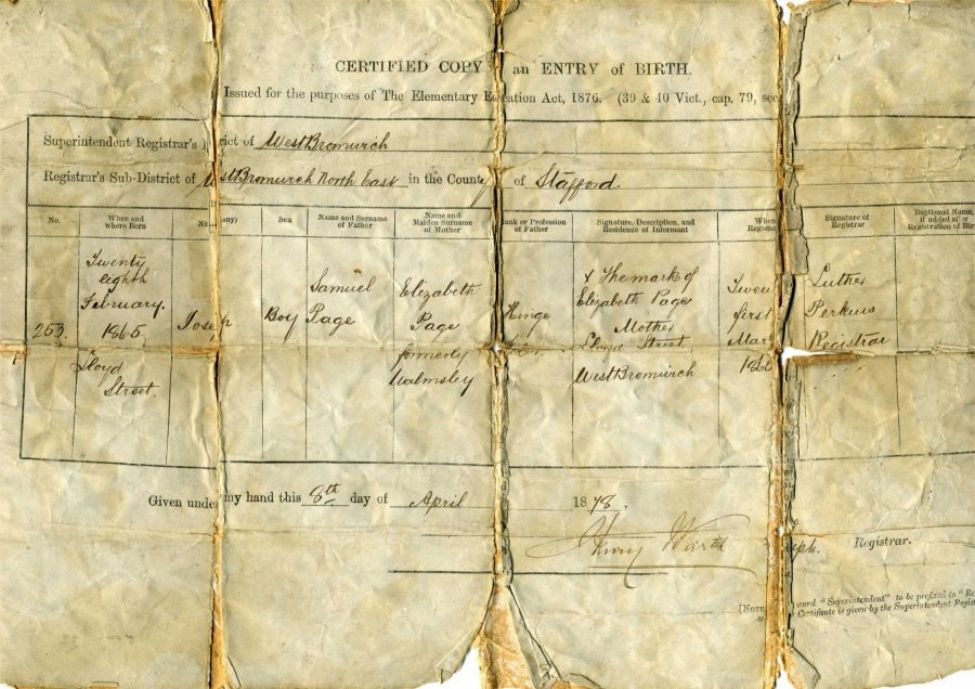 CERTIFIED COPY an ENTRY of BIRTH.
Issued for the purposes of The Elementary E cation Act, 1876. (39 & 40 Vict., cap. 79, sec
Superintendent Registrar's rict of West Bromwich
Registrar's Sub-District of West Bromwich North East in the County of Stafford.
No. When and where Born Na any) Sex Name and Surname of Father Name and Maiden Surname of Mother ank or Profession of Father Signature, Description, and Residence of Informant When Register Signature of Registrar Baptismal Name, if added after Registration of Bir
253. Twenty eighth February. 1865, Lloyd Street. Josep Boy Samuel Page Elizabeth Page formerly Walmsley Hinge X The mark of Elizabeth Page Mother Lloyd Street West Bromwich Twen first Mar 186 Luther Perkins Registrar
Given under my hand this 8th day of April 1878.
Registrar.
[Note word "Superintendent" to be prefixed to "Re
Certificate is given by the Superintendent Regist